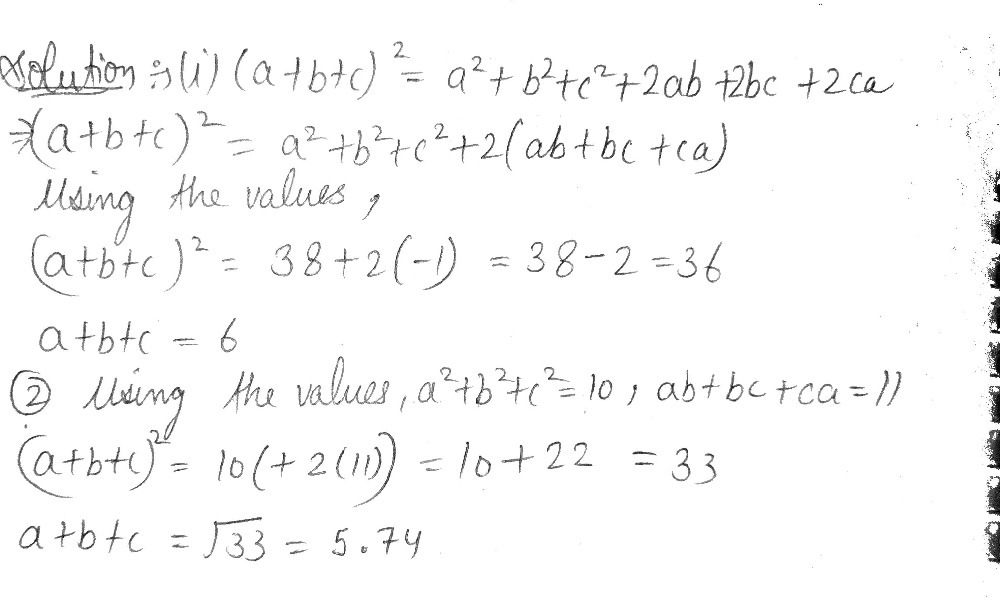 Solution :→ (i) (a+b+c)² = a²+b²+c²+2ab+2bc+2ca
⇒ (a+b+c)² = a²+b²+c²+2(ab+bc+ca)
Using the values,
(a+b+c)² = 38+2(-1) = 38-2 = 36
a+b+c = 6
② Using the values, a²+b²+c²=10, ab+bc+ca=11
(a+b+c)² = 10(+2(11)) = 10+22 = 33
a+b+c = √33 = 5.74